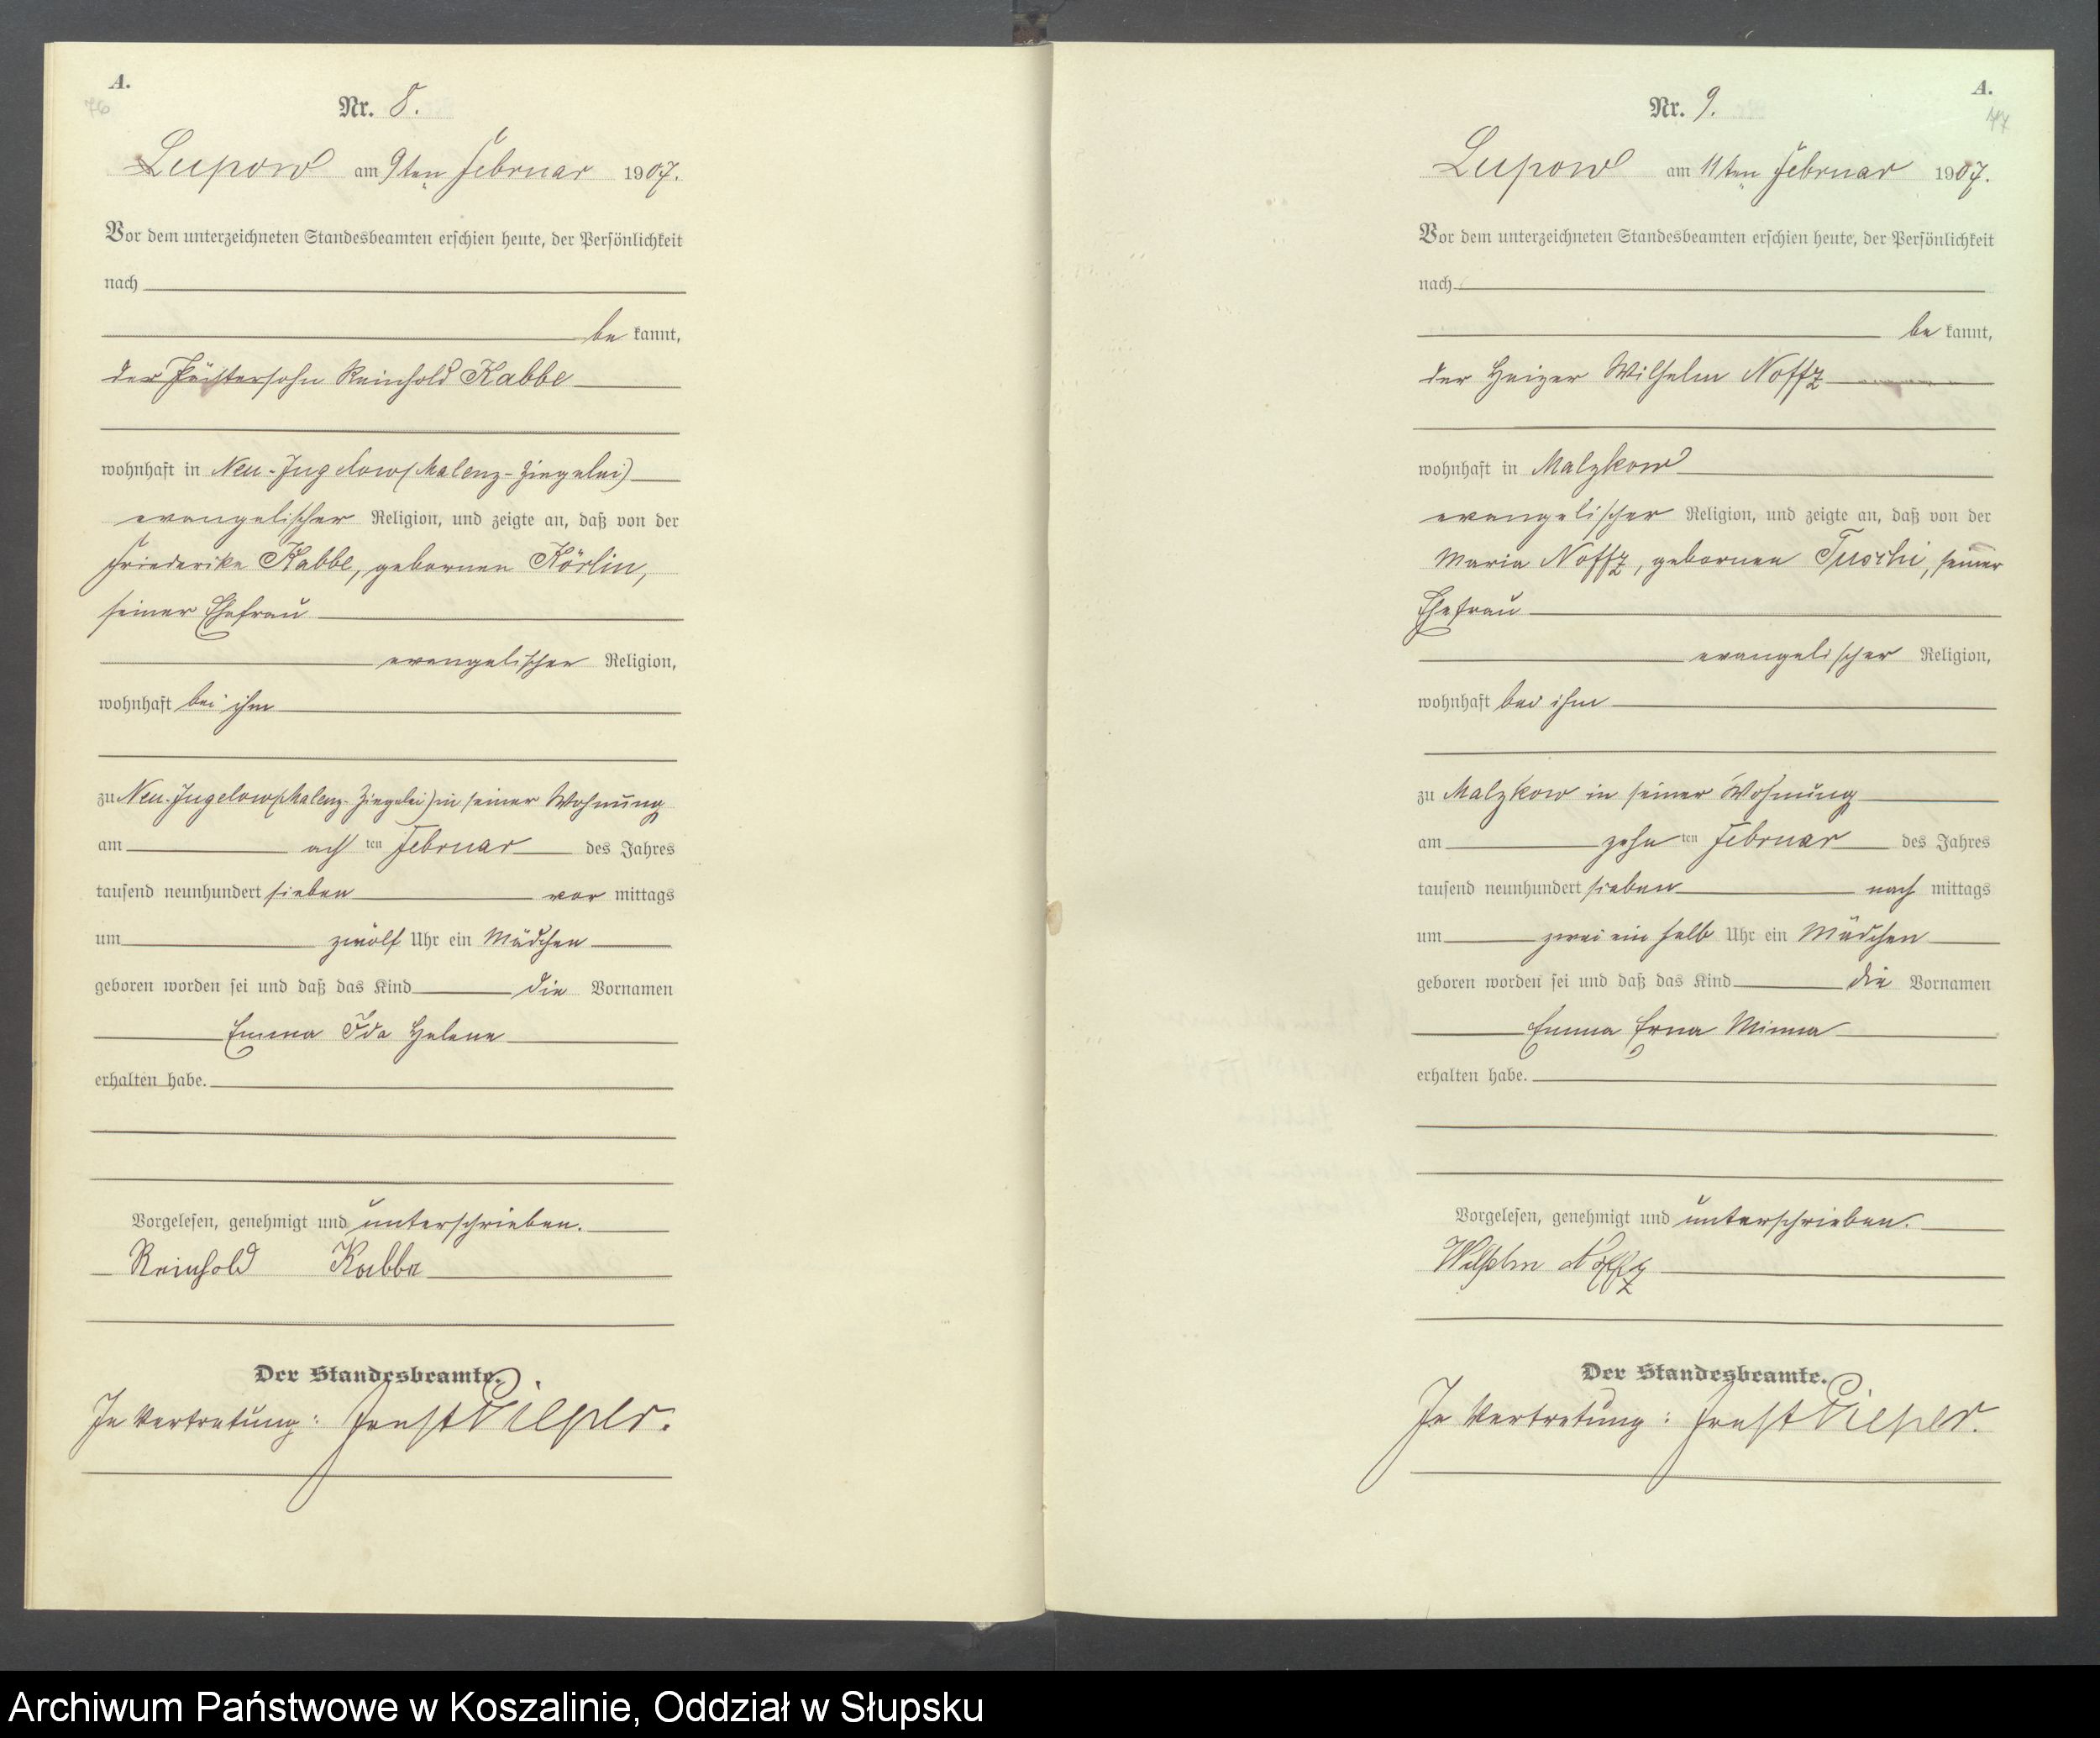 A.
76
Nr. 8.
Lupow am 9ten Februar 1907.
Vor dem unterzeichneten Standesbeamten erschien heute, der Persönlichkeit
nach
be kannt,
der Reinhold Kabbe
wohnhaft in Neu-Jugelow (Malenz-Ziegelei)
evangelischer Religion, und zeigte an, daß von der
Friederike Kabbe, gebornen Körlin,
seiner Ehefrau
evangelischer Religion,
wohnhaft bei ihm
zu Neu-Jugelow (Malenz-Ziegelei) in seiner Wohnung
am ach ten Februar des Jahres
tausend neunhundert sieben vor mittags
um zwölf Uhr ein Mädchen
geboren worden sei und daß das Kind die Vornamen
Emma Ida Helene
erhalten habe.
Vorgelesen, genehmigt und unterschrieben.
Reinhold Kabbe
Der Standesbeamte.
In Vertretung: Ernst Pieper.
A.
77
Nr. 9.
Lupow am 11ten Februar 1907.
Vor dem unterzeichneten Standesbeamten erschien heute, der Persönlichkeit
nach
be kannt,
der Heizer Wilhelm Noffz
wohnhaft in Malzkow
evangelischer Religion, und zeigte an, daß von der
Maria Noffz, gebornen Tuschi, seiner
Ehefrau
evangelischer Religion,
wohnhaft bei ihm
zu Malzkow in seiner Wohnung
am zehn ten Februar des Jahres
tausend neunhundert sieben nach mittags
um zwei ein halb Uhr ein Mädchen
geboren worden sei und daß das Kind die Vornamen
Emma Erna Minna
erhalten habe.
Vorgelesen, genehmigt und unterschrieben.
Wilhelm Noffz
Der Standesbeamte.
In Vertretung: Ernst Pieper.
Archiwum Państwowe w Koszalinie, Oddział w Słupsku